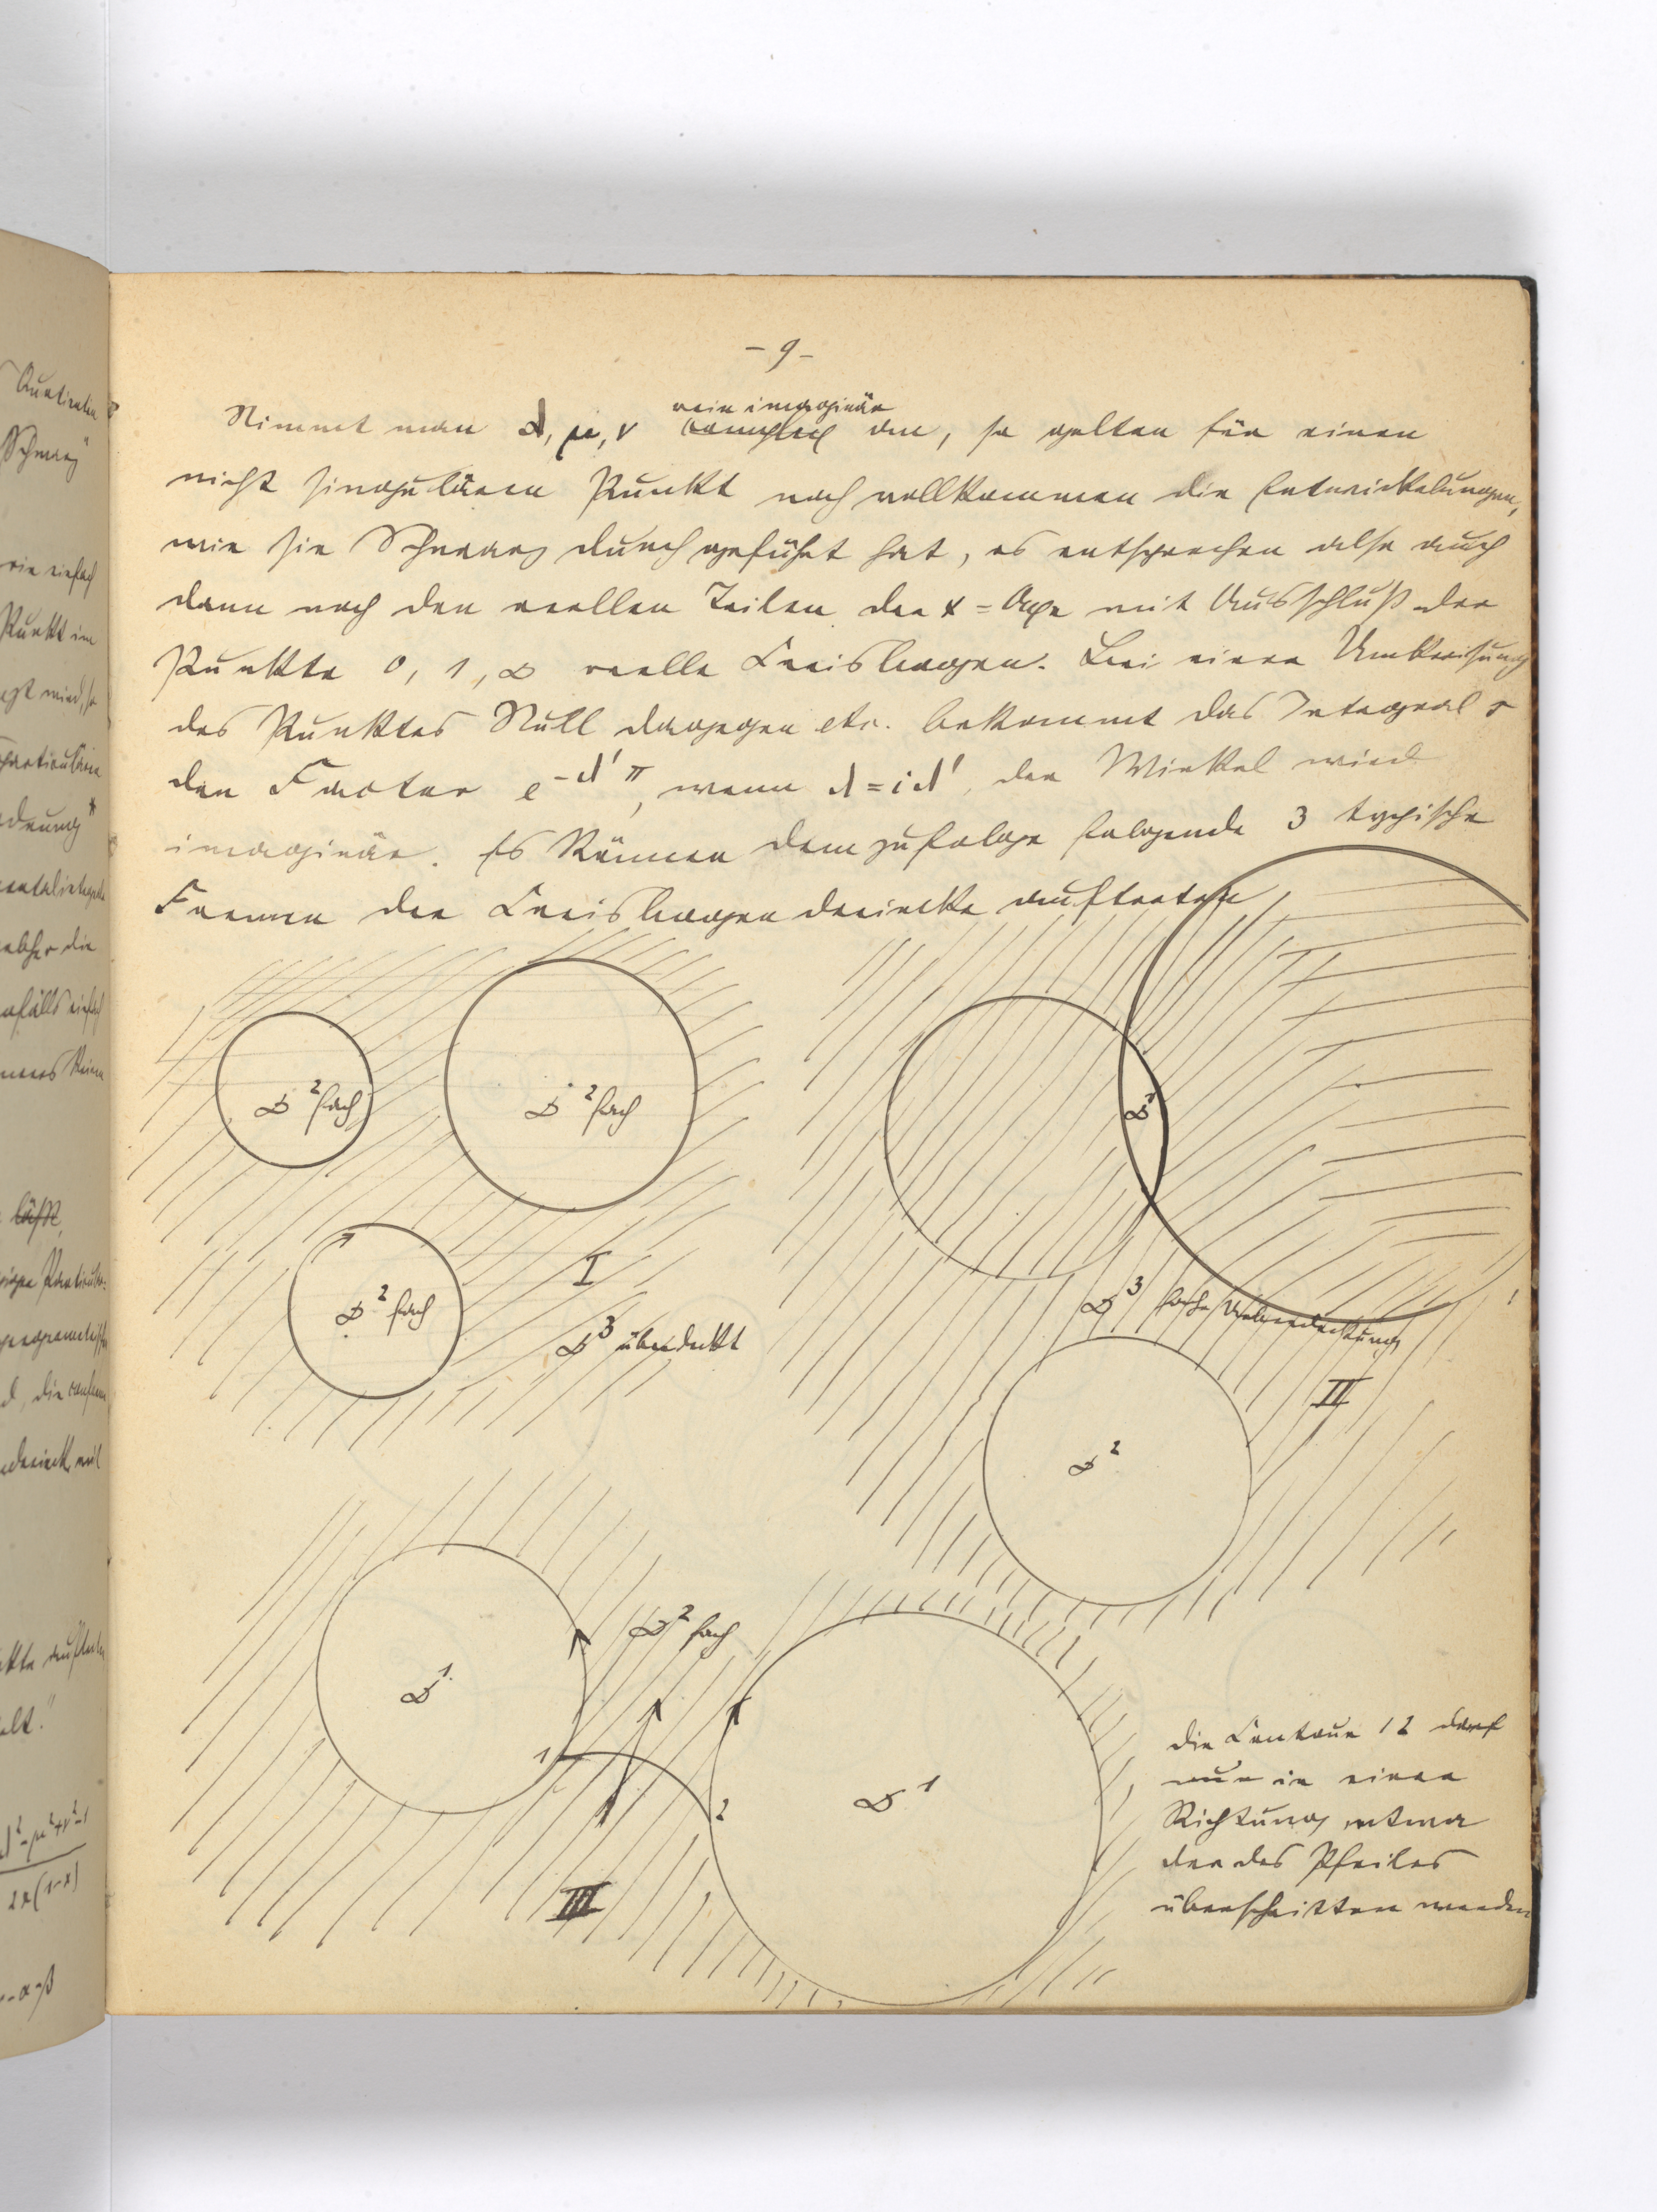 - 9 -
rein imaginär
Nimmt man λ, μ, ν complex an, so gelten für einen
nicht singulären Punkt noch vollkommen die Entwickelungen,
wie sie Schwarz durchgeführt hat, es entsprechen also auch
dann noch den reellen Teilen der x = Axe mit Ausschluß der
Punkte 0, 1, ∞ reelle Kreisbogen. Bei einer Umkreisung
des Punktes Null dagegen etc. bekommt das Integral s
den Factor e^{-λ'π}, wenn λ = iλ', der Winkel wird
imaginär. Es können demzufolge folgende 3 typische
Formen der Kreisbogendreiecke auftreten
∞² fach
∞² fach
∞² fach
I
∞³ überdeckt
∞¹
∞³ fache Ueberdeckung
II
∞²
∞² fach
∞¹
1
2
∞¹
III
die Contour 12 darf
nur in einer
Richtung, etwa
der des Pfeiles
überschritten werden